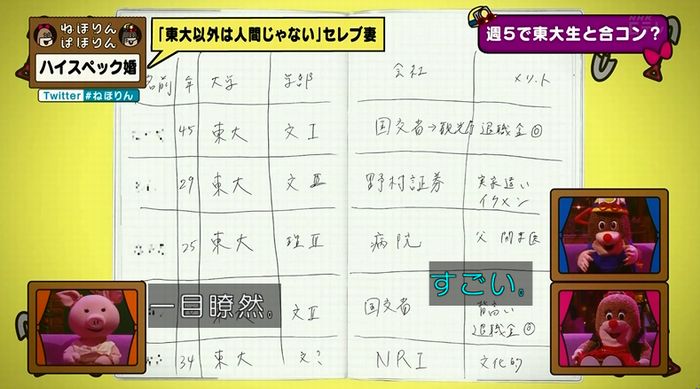 ねほりん
ぱほりん
ハイスペック婚
Twitter #ねほりん
「東大以外は人間じゃない」セレブ妻
NHK
週5で東大生と合コン?
名前 年 大学 学部 会社 メリット
45 東大 文Ⅰ 国交省→観光庁 退職金◎
29 東大 文Ⅲ 野村証券 実家遠い
イケメン
25 東大 理Ⅲ 病院 父 開業医
東大 文Ⅱ 国交省 背高い
退職金◎
34 東大 文? NRI 文化的
一目瞭然。
すごい。